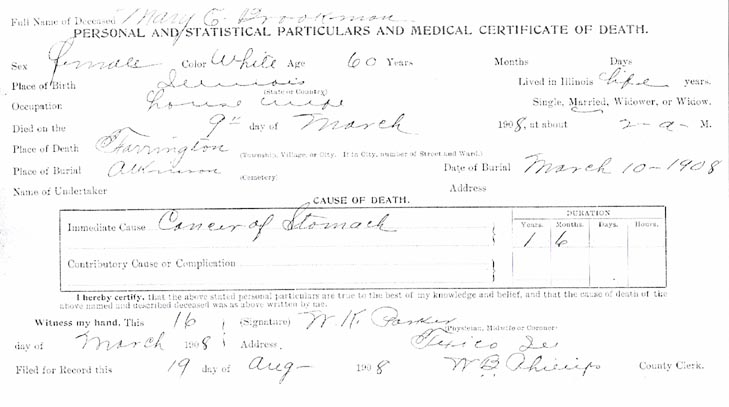 Full Name of Deceased Mary E. Brookman
PERSONAL AND STATISTICAL PARTICULARS AND MEDICAL CERTIFICATE OF DEATH.
Sex female Color White Age 60 Years Months Days
Place of Birth Illinois (State or Country) Lived in Illinois life years.
Occupation house wife Single, Married, Widower, or Widow.
Died on the 9th day of March 1908, at about 2 a M.
Place of Death Farrington (Township, Village, or City. If in City, number of Street and Ward.)
Place of Burial Atkinson (Cemetery) Date of Burial March 10-1908
Name of Undertaker Address
CAUSE OF DEATH.
DURATION
Immediate Cause Cancer of Stomach Years. Months. Days. Hours.
1 6
Contributory Cause or Complication
I hereby certify, that the above stated personal particulars are true to the best of my knowledge and belief, and that the cause of death of the
above named and described deceased was as above written by me.
Witness my hand. This 16 (Signature) W. K. Parker
(Physician, Midwife or Coroner)
day of March 1908 Address. Texico Ill
Filed for Record this 19 day of Aug- 1908 W B Phillips County Clerk.